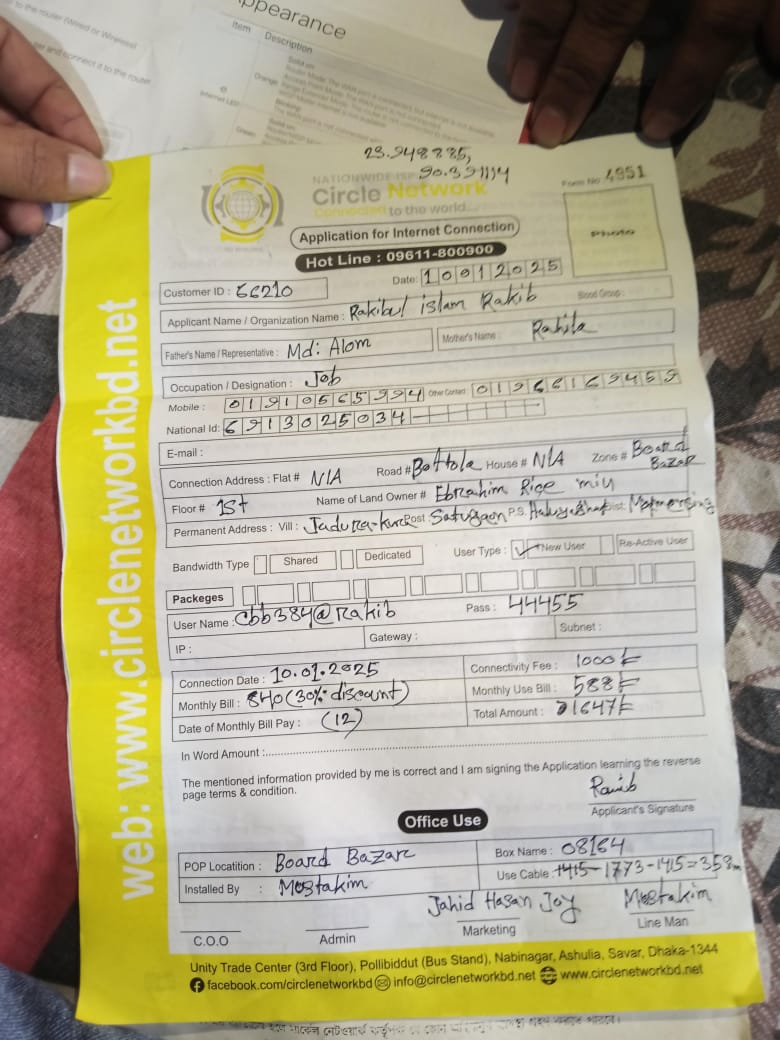 to the router (Wired or Wireless)
and connect it to the router
Appearance
Item Description
Internet LED
Orange
Green
23.948885,
90.391114
NATIONWIDE ISP
Circle Network
Connected to the world...
Form No 4951
Application for Internet Connection
Hot Line : 09611-800900
Photo
Customer ID : 56210
Date: 10012025
Applicant Name / Organization Name : Rakibul islam Rakib Blood Group :
Father's Name / Representative : Md: Alom Mother's Name : Rahila
Occupation / Designation : Job
Mobile : 01910565994 Other Contact 01966169459
National Id: 6913025034
E-mail :
Connection Address : Flat# N/A Road # Bottola House # N/A Zone # Board Bazar
Floor # 1st Name of Land Owner # Ebrahim Rice mil
Permanent Address : Vill : Post: Satugaon P.S: Dist:
Bandwidth Type Shared Dedicated User Type : ✓ New User Re-Active User
Packeges
User Name : cbb384@Rakib Pass : 44455
IP : Gateway : Subnet :
Connection Date : 10.01.2025 Connectivity Fee : 1000
Monthly Bill : 840 (30% discount) Monthly Use Bill : 588
Date of Monthly Bill Pay : (12) Total Amount : 1647
In Word Amount :
The mentioned information provided by me is correct and I am signing the Application learning the reverse
page terms & condition.
Rakib
Applicant's Signature
Office Use
POP Locatition : Board Bazar Box Name : 08164
Installed By : Mostakim Use Cable : 1415-1773-1415=358m
Jahid Hasan Joy Mostakim
C.O.O Admin Marketing Line Man
Unity Trade Center (3rd Floor), Pollibiddut (Bus Stand), Nabinagar, Ashulia, Savar, Dhaka-1344
facebook.com/circlenetworkbd info@circlenetworkbd.net www.circlenetworkbd.net
web: www.circlenetworkbd.net